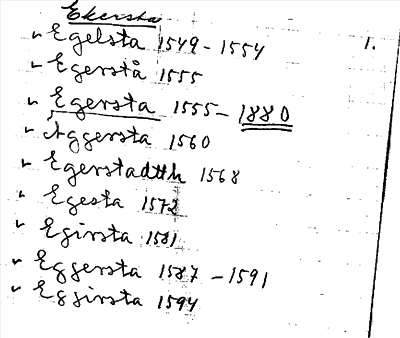 Ekersta
Egelsta 1549 - 1554 1.
Egerstå 1555
Egersta 1555 - 1880
Aggersta 1560
Egerstadtth 1568
Egesta 1572
Egirsta 1581
Eggersta 1587 - 1591
Eggirsta 1594